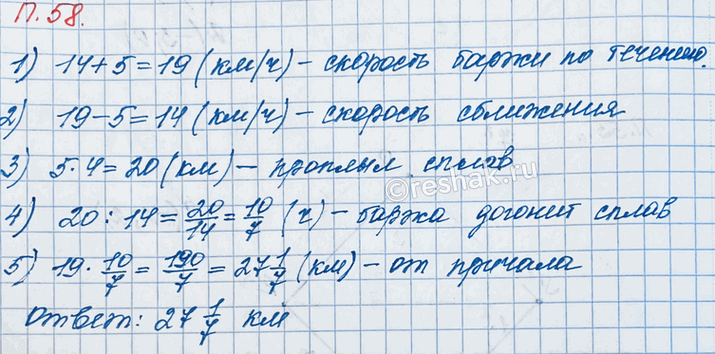 П.58.
1) 14+5=19 (км/ч) – скорость баржи по течению.
2) 19-5=14 (км/ч) – скорость сближения
3) 5·4=20 (км) – проплыл сплав
©reshak.ru
4) 20:14=20/14=10/7 (ч) – баржа догонит сплав
5) 19·10/7=190/7=27 1/7 (км) – от причала
Ответ: 27 1/7 км